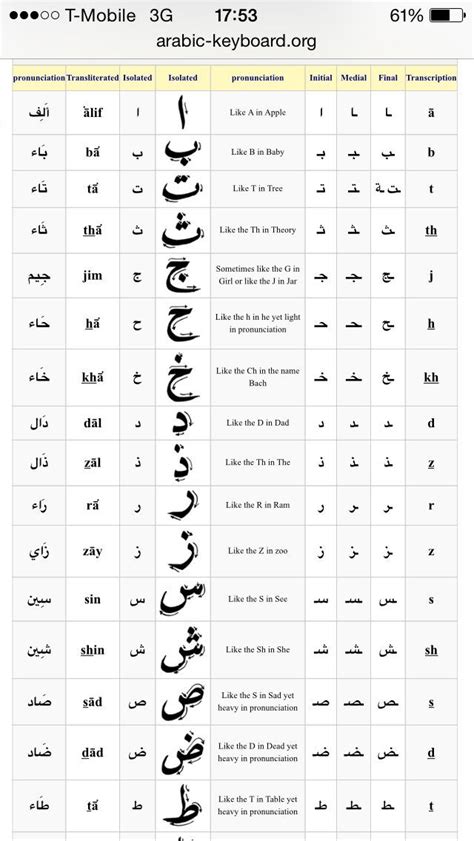 T-Mobile 3G 17:53 61%
arabic-keyboard.org
pronunciation Transliterated Isolated Isolated pronunciation Initial Medial Final Transcription
أَلِف ālif ا ا Like A in Apple ا ـا ـا ā
بَاء bā ب ب Like B in Baby بـ ـبـ ـب b
تَاء tā ت ت Like T in Tree تـ ـتـ ـت ـة t
ثَاء thā ث ث Like the Th in Theory ثـ ـثـ ـث th
جِيم jim ج ج Sometimes like the G in Girl or like the J in Jar جـ ـجـ ـج j
حَاء hā ح ح Like the h in he yet light in pronunciation حـ ـحـ ـح h
خَاء khā خ خ Like the Ch in the name Bach خـ ـخـ ـخ kh
دَال dāl د د Like the D in Dad د ـد ـد d
ذَال zāl ذ ذ Like the Th in The ذ ـذ ـذ z
رَاء rā ر ر Like the R in Ram ر ـر ـر r
زَاي zāy ز ز Like the Z in zoo ز ـز ـز z
سِين sin س س Like the S in See سـ ـسـ ـس s
شِين shin ش ش Like the Sh in She شـ ـشـ ـش sh
صَاد sād ص ص Like the S in Sad yet heavy in pronunciation صـ ـصـ ـص s
ضَاد dād ض ض Like the D in Dead yet heavy in pronunciation ضـ ـضـ ـض d
طَاء tā ط ط Like the T in Table yet heavy in pronunciation طـ ـطـ ـط t